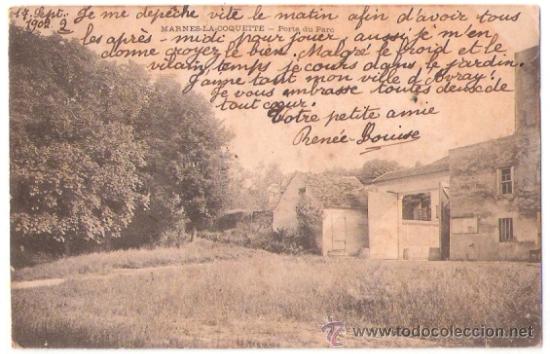 17 Sept. Je me depêche vite le matin afin d'avoir tous
1902 les après-midi pour jouer, aussi je m'en
MARNES-LA-COQUETTE — Porte du Parc
donne croyez le bien. Malgré le froid et le
vilain temps je cours dans le jardin.
J'aime tant mon ville d'Avray!
Je vous embrasse toutes deux de
tout cœur.
Votre petite amie
Renée-Louise
© todocoleccion
www.todocoleccion.net